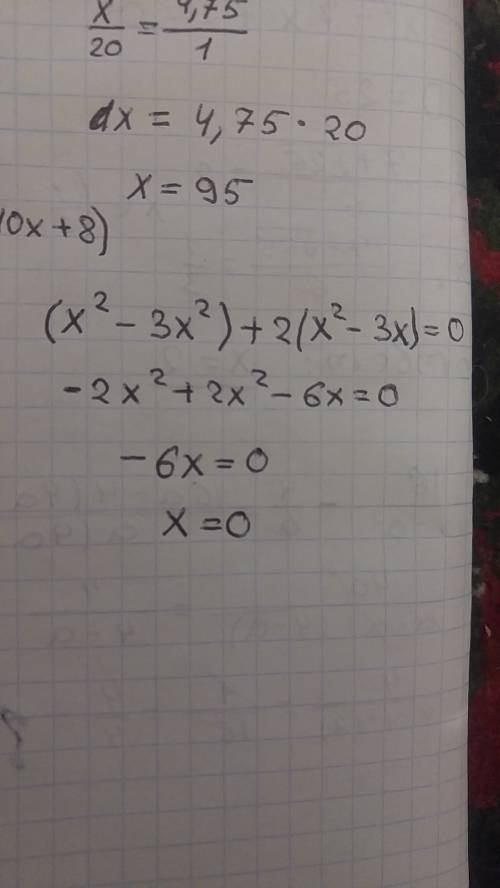 x/20 = 4,75/1
x = 4,75 · 20
x = 95
10x + 8)
(x² - 3x²) + 2(x² - 3x) = 0
-2x² + 2x² - 6x = 0
-6x = 0
x = 0